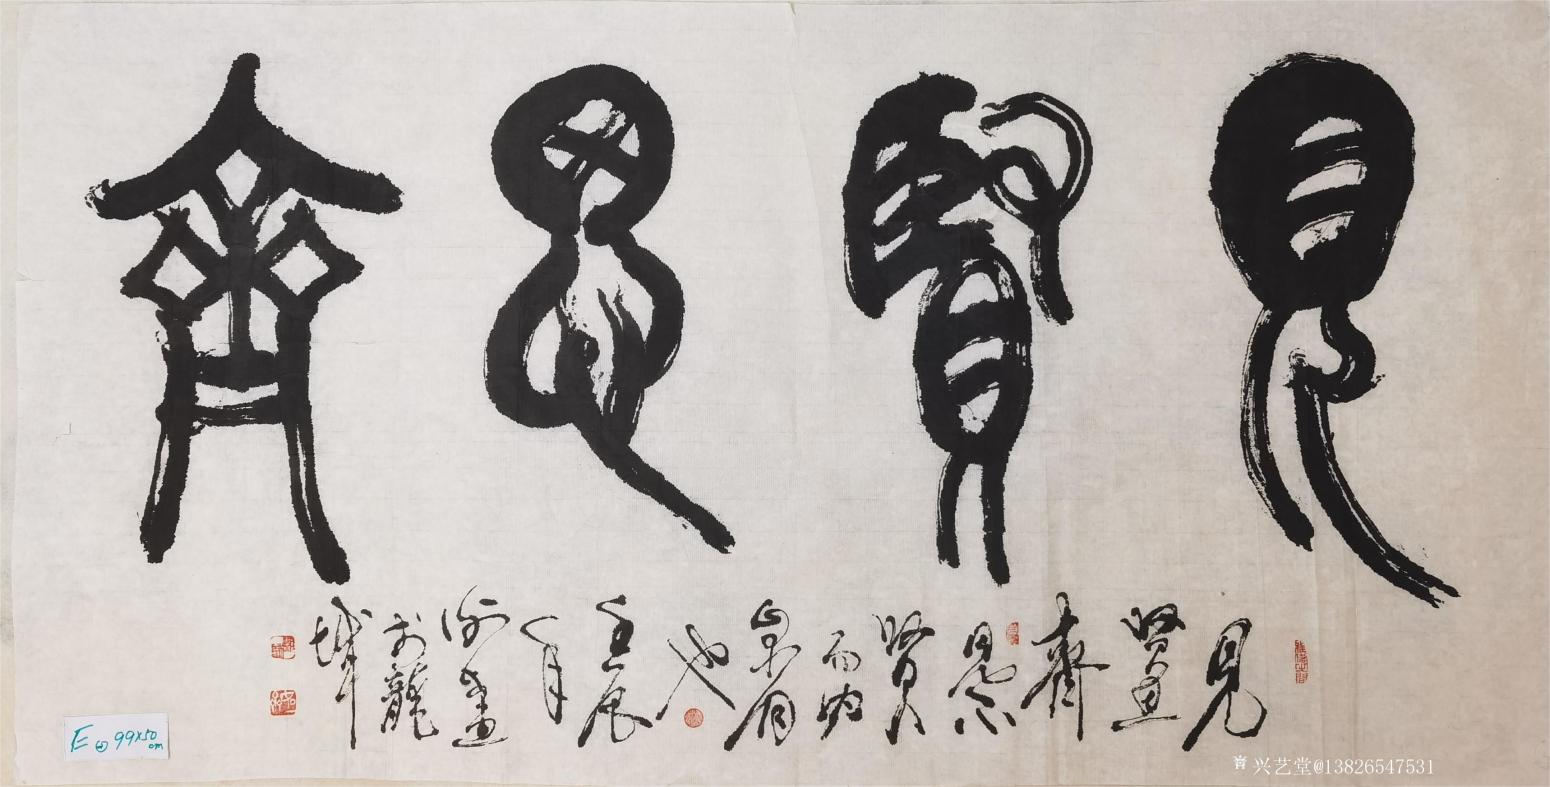 見賢思齊
見賢思齊見不賢而内自省也壬辰於龍城
E 99x50 cm
兴艺堂@13826547531